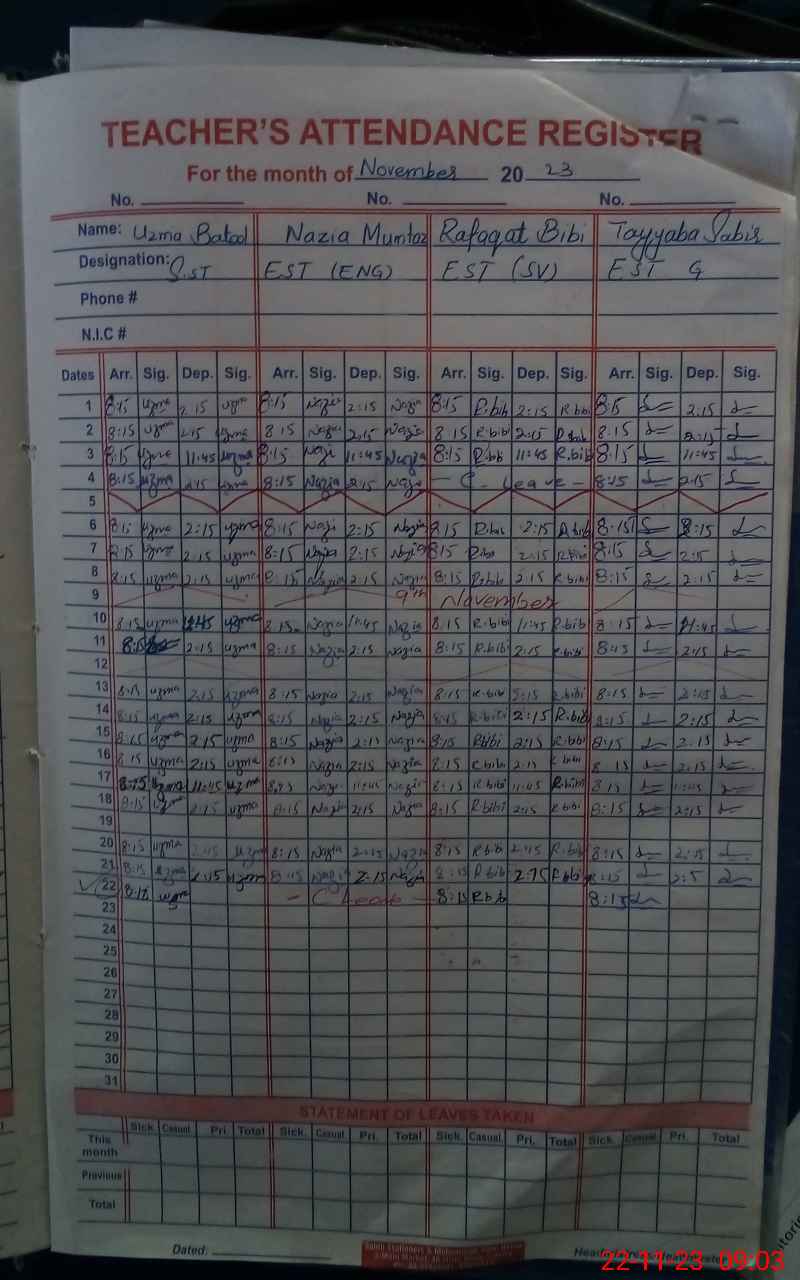 TEACHER'S ATTENDANCE REGISTER
For the month of November 20 23
No. No. No.
Name: Uzma Batool Nazia Mumtaz Rafaqat Bibi Tayyaba Sabir
Designation: S.ST EST (ENG) EST (SV) EST G
Phone #
N.I.C #
Dates Arr. Sig. Dep. Sig. Arr. Sig. Dep. Sig. Arr. Sig. Dep. Sig. Arr. Sig. Dep. Sig.
1 8:15 uzma 2:15 uzma 8:15 Nazia 2:15 Nazia 8:15 R.bib 2:15 R.bib 8:15 2:15
2 8:15 uzma 2:15 uzma 8:15 Nazia 2:15 Nazia 8:15 R.bib 2:15 R.bib 8:15 2:15
3 8:15 uzma 11:45 uzma 8:15 Nazi 11:45 Nazia 8:15 R.bb 11:45 R.bibi 8:15 11:45
4 8:15 uzma 2:15 uzma 8:15 Nazia 2:15 Nazia - C. Leave - 8:15 2:15
5
6 8:15 uzma 2:15 uzma 8:15 Nazi 2:15 Nazia 8:15 R.bi 2:15 R.bib 8:15 2:15
7 8:15 uzma 2:15 uzma 8:15 Nazia 2:15 Nazia 8:15 R.bi 2:15 R.bibi 8:15 2:15
8 8:15 uzma 2:15 uzma 8:15 Nazia 2:15 Nazia 8:15 R.bibi 2:15 R.bibi 8:15 2:15
9 9th November
10 8:15 uzma 11:45 uzma 8:15 Nazia 11:45 Nazia 8:15 R.bibi 11:45 R.bib 8:15 11:45
11 8:15 2:15 uzma 8:15 Nazia 2:15 Nazia 8:15 R.bibi 2:15 R.bibi 8:15 2:15
12
13 8:15 uzma 2:15 uzma 8:15 Nazia 2:15 Nazia 8:15 R.bib 2:15 R.bibi 8:15 2:15
14 8:15 uzma 2:15 uzma 8:15 Nazia 2:15 Nazia 8:15 R.bibi 2:15 R.bibi 8:15 2:15
15 8:15 uzma 2:15 uzma 8:15 Nazia 2:15 Nazia 8:15 R.bibi 2:15 R.bibi 8:15 2:15
16 8:15 uzma 2:15 uzma 8:15 Nazia 2:15 Nazia 8:15 R.bibi 2:15 R.bibi 8:15 2:15
17 8:15 uzma 11:45 uzma 8:15 Nazia 11:45 Nazia 8:15 R.bibi 11:45 R.bibi 8:15 11:45
18 8:15 uzma 2:15 uzma 8:15 Nazia 2:15 Nazia 8:15 R.bibi 2:15 R.bibi 8:15 2:15
19
20 8:15 uzma 2:45 uzma 8:15 Nazia 2:15 Nazia 8:15 R.bib 2:45 R.bib 8:15 2:15
21 8:15 uzma 2:15 uzma 8:15 Nazia 2:15 Nazia 8:15 R.bib 2:15 R.bbi 8:15 2:5
22 8:15 uzma - C Leave - 8:15 R.bb 8:15
23
24
25
26
27
28
29
30
31
STATEMENT OF LEAVES TAKEN
Sick. Casual. Pri. Total Sick. Casual. Pri. Total Sick. Casual. Pri. Total Sick. Casual. Pri. Total
This month
Previous
Total
Dated:
22-11-23 09:03